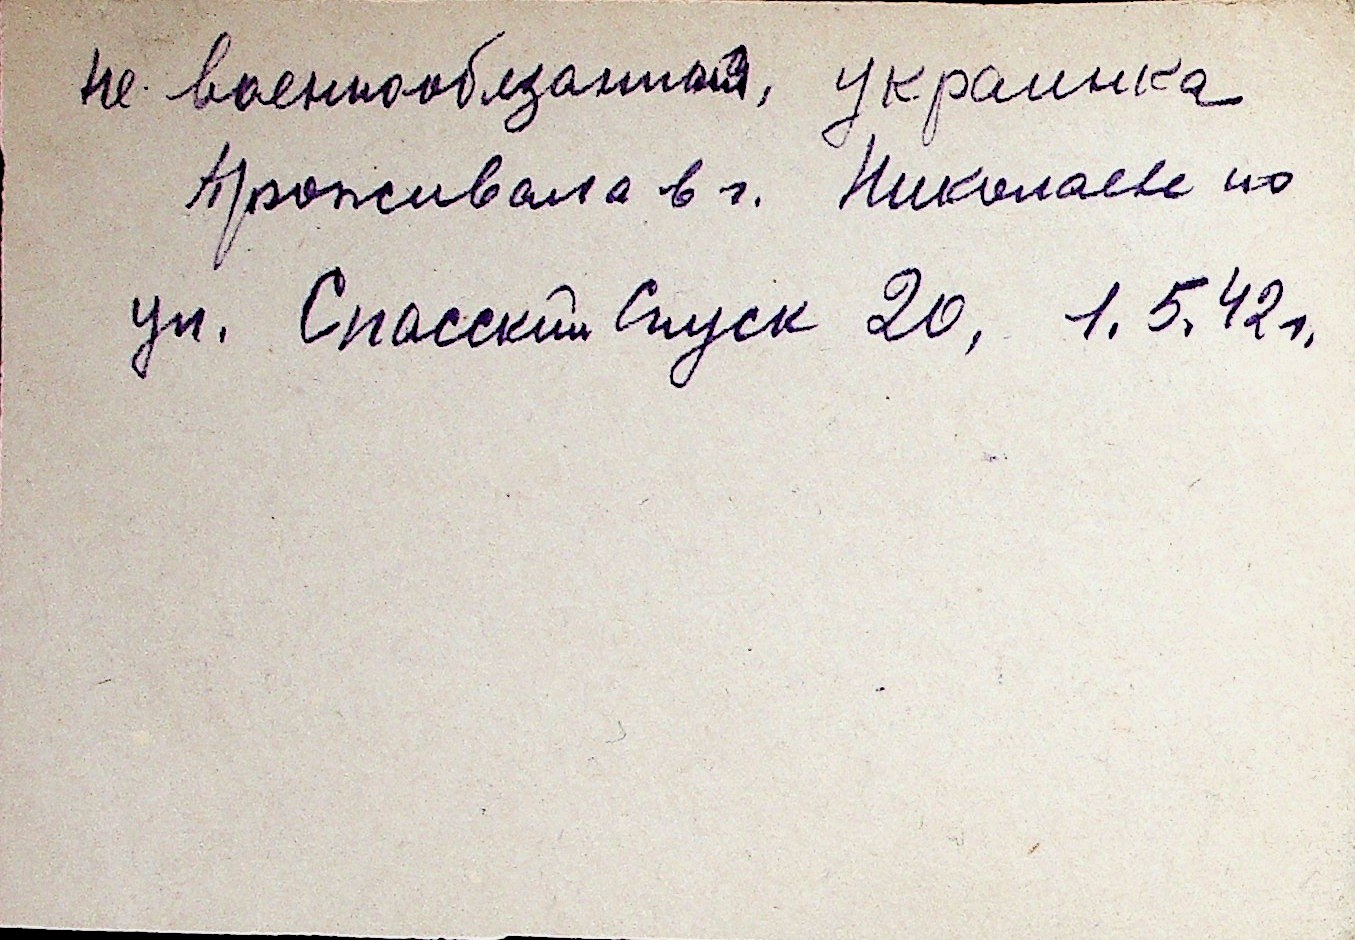 не военнообязанная, украинка
Проживала в г. Николаеве по
ул. Спасский Спуск 20, 1.5.42г.